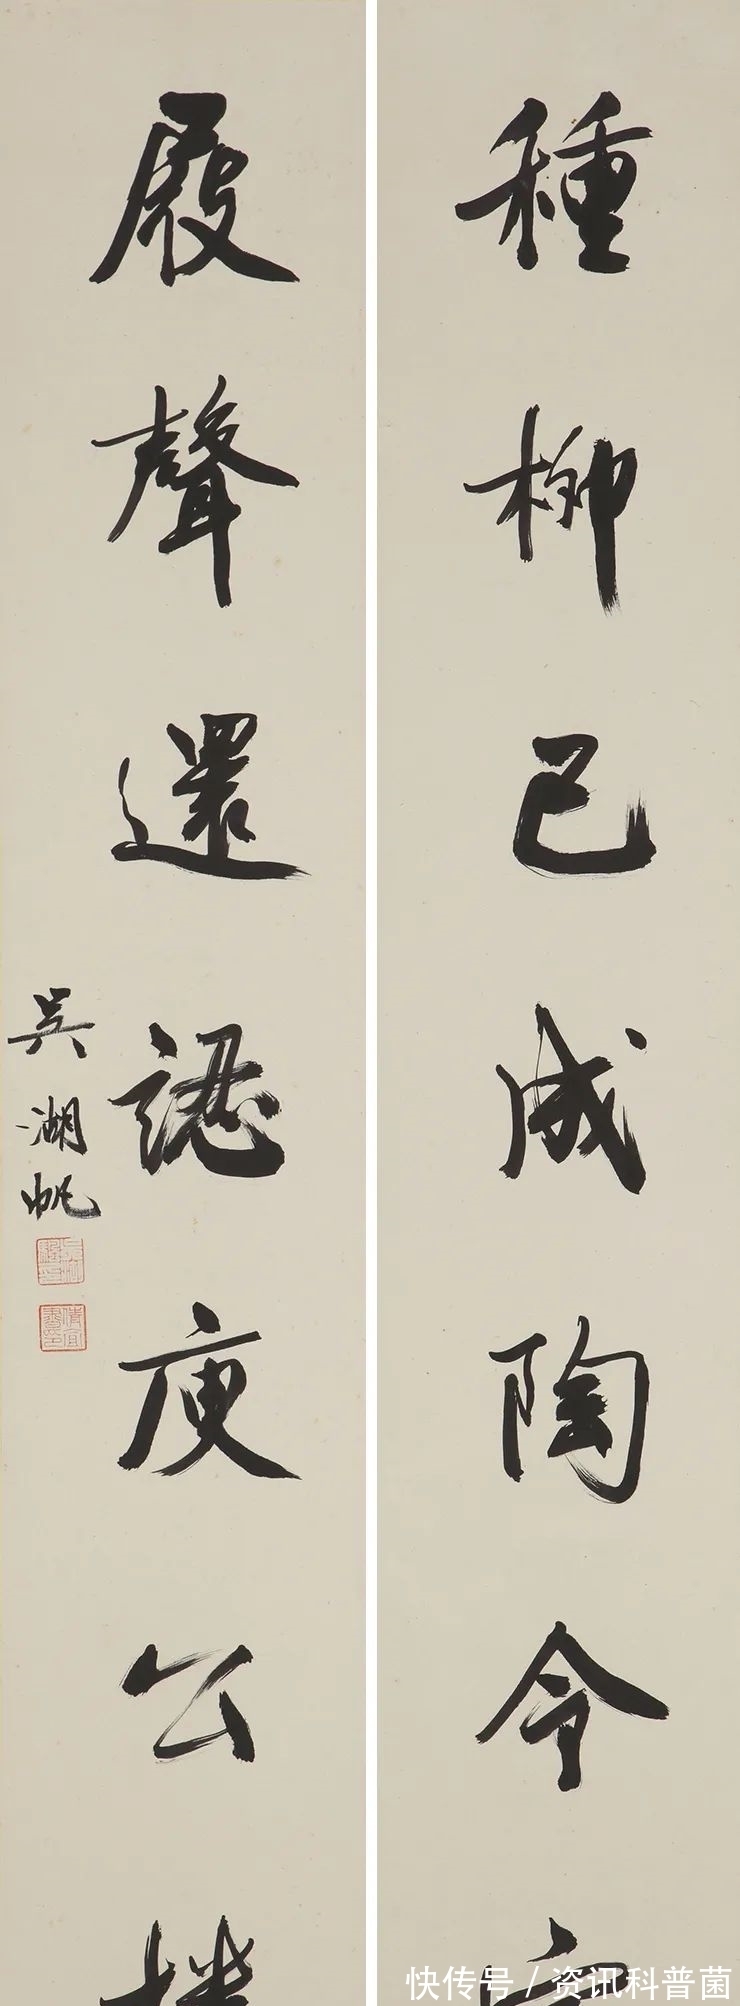 種柳已成陶令
屐聲還認庾公
吳湖帆
快传号 / 资讯科普菌